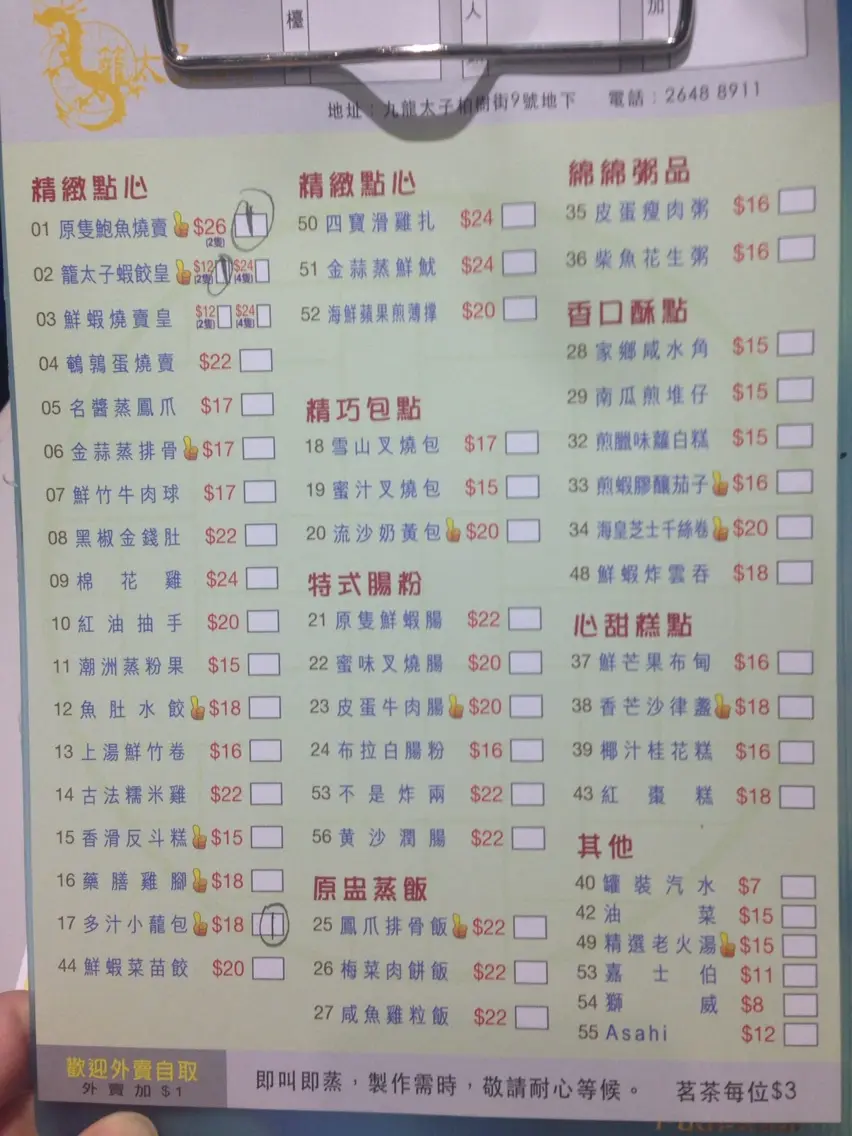 龍太子
檯
人
加
地址：九龍太子柏樹街9號地下 電話：2648 8911
精緻點心
01 原隻鮑魚燒賣 $26 (2隻)
02 籠太子蝦餃皇 $12 (2隻) $24 (4隻)
03 鮮蝦燒賣皇 $12 (2隻) $24 (4隻)
04 鵪鶉蛋燒賣 $22
05 名醬蒸鳳爪 $17
06 金蒜蒸排骨 $17
07 鮮竹牛肉球 $17
08 黑椒金錢肚 $22
09 棉花雞 $24
10 紅油抽手 $20
11 潮洲蒸粉果 $15
12 魚肚水餃 $18
13 上湯鮮竹卷 $16
14 古法糯米雞 $22
15 香滑反斗糕 $15
16 藥膳雞腳 $18
17 多汁小蘢包 $18
44 鮮蝦菜苗餃 $20
精緻點心
50 四寶滑雞扎 $24
51 金蒜蒸鮮魷 $24
52 海鮮蘋果煎薄撐 $20
精巧包點
18 雪山叉燒包 $17
19 蜜汁叉燒包 $15
20 流沙奶黃包 $20
特式腸粉
21 原隻鮮蝦腸 $22
22 蜜味叉燒腸 $20
23 皮蛋牛肉腸 $20
24 布拉白腸粉 $16
53 不是炸兩 $22
56 黃沙潤腸 $22
原盅蒸飯
25 鳳爪排骨飯 $22
26 梅菜肉餅飯 $22
27 咸魚雞粒飯 $22
綿綿粥品
35 皮蛋瘦肉粥 $16
36 柴魚花生粥 $16
香口酥點
28 家鄉咸水角 $15
29 南瓜煎堆仔 $15
32 煎臘味蘿白糕 $15
33 煎蝦膠釀茄子 $16
34 海皇芝士千絲卷 $20
48 鮮蝦炸雲吞 $18
心甜糕點
37 鮮芒果布甸 $16
38 香芒沙律盞 $18
39 椰汁桂花糕 $16
43 紅棗糕 $18
其他
40 罐裝汽水 $7
42 油菜 $15
49 精選老火湯 $15
53 嘉士伯 $11
54 獅威 $8
55 Asahi $12
歡迎外賣自取
外賣加$1
即叫即蒸，製作需時，敬請耐心等候。 茗茶每位$3